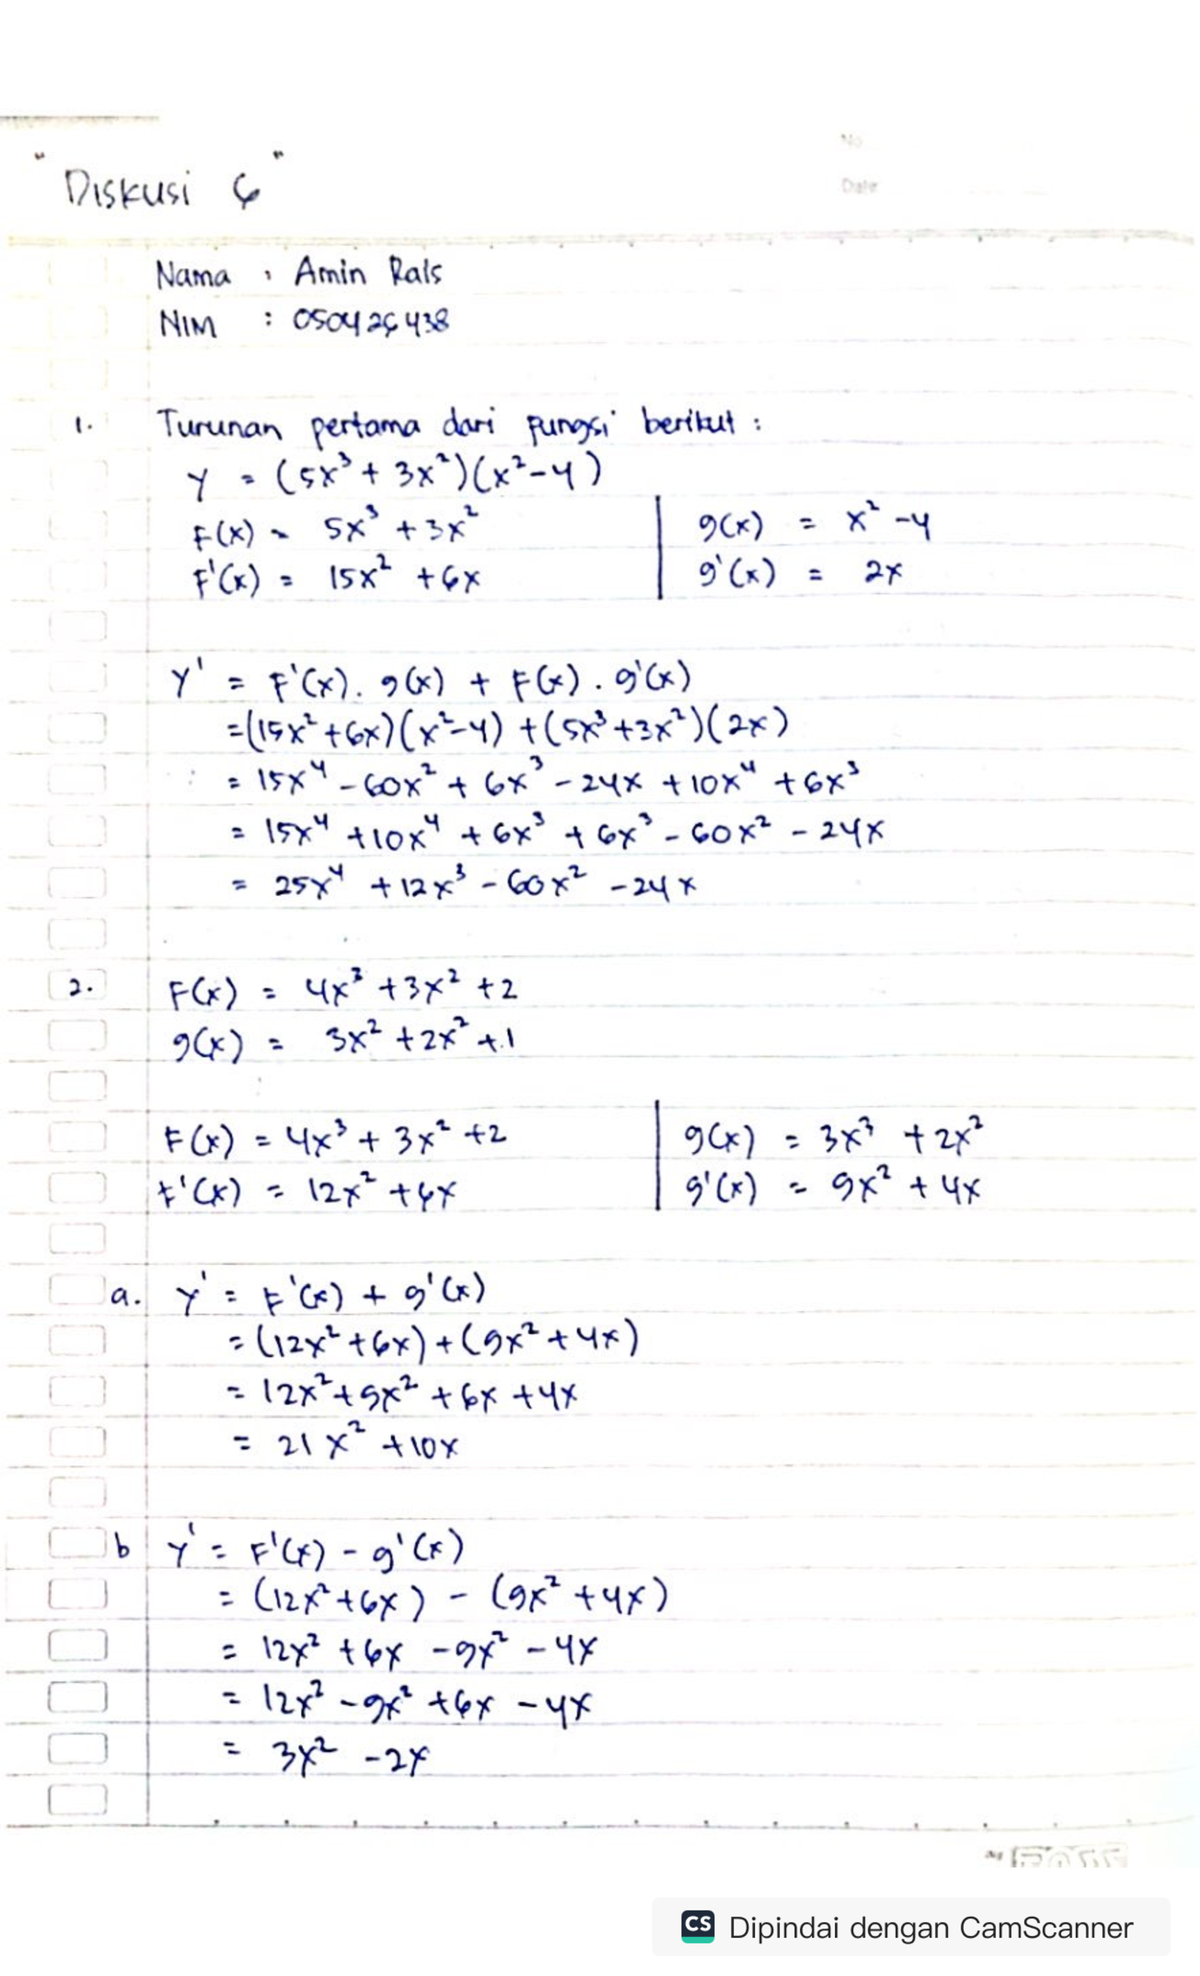 "Diskusi 6"
No
Date
Nama : Amin Rais
NIM :
1. Turunan pertama dari fungsi berikut :
Y = (5x³ + 3x²)(x²-4)
F(x) = 5x³ + 3x² | g(x) = x² -4
F'(x) = 15x² + 6x | g'(x) = 2x
Y' = F'(x). g(x) + F(x) . g'(x)
=(15x² +6x)(x²-4) +(5x³+3x²)(2x)
= 15x⁴ - 60x² + 6x³ - 24x + 10x⁴ + 6x³
= 15x⁴ +10x⁴ + 6x³ + 6x³ - 60x² - 24x
= 25x⁴ +12x³ - 60x² -24x
2. F(x) = 4x³ +3x² +2
g(x) = 3x² +2x² +1
F(x) = 4x³ + 3x² +2 | g(x) = 3x³ +2x²
F'(x) = 12x² +6x | g'(x) = 9x² + 4x
a. Y' = F'(x) + g'(x)
= (12x² +6x) + (9x² +4x)
= 12x²+9x² +6x +4x
= 21x² +10x
b Y' = F'(x) - g'(x)
= (12x²+6x) - (9x² +4x)
= 12x² +6x -9x² -4x
= 12x² -9x² +6x -4x
= 3x² -2x
CS Dipindai dengan CamScanner